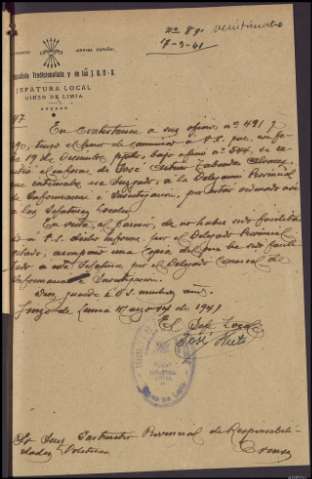 nº 89 veinticuatro
17-3-41
ARRIBA ESPAÑA!
Española Tradicionalista y de las J.O.N-S.
JEFATURA LOCAL
GINZO DE LIMIA
En contestación a sus oficios nº 491 y
tengo el honor de comunicar a V.S. que, con fe-
cha 19 de Diciembre ppdo, bajo el nº 544, se re-
el informe de José Taboada
ese Juzgado, a la Delegación Provincial
de Información e Investigación, por estar ordenado así
a las Jefaturas Locales.
En vista, al parecer, de no haber sido facilitado
a V.S. dicho informe por el Delegado Provincial
citado, acompaño una copia del que ha sido facili-
tado a esta Jefatura por el Delegado Comarcal de
Información e Investigación.
Dios guarde a V.S. muchos años.
Ginzo de Limia Marzo 14 de 1941
El Jefe Local
José
GINZO DE LIMIA
Sr Juez Instructor Provincial de Responsabili-
dades Políticas Orense